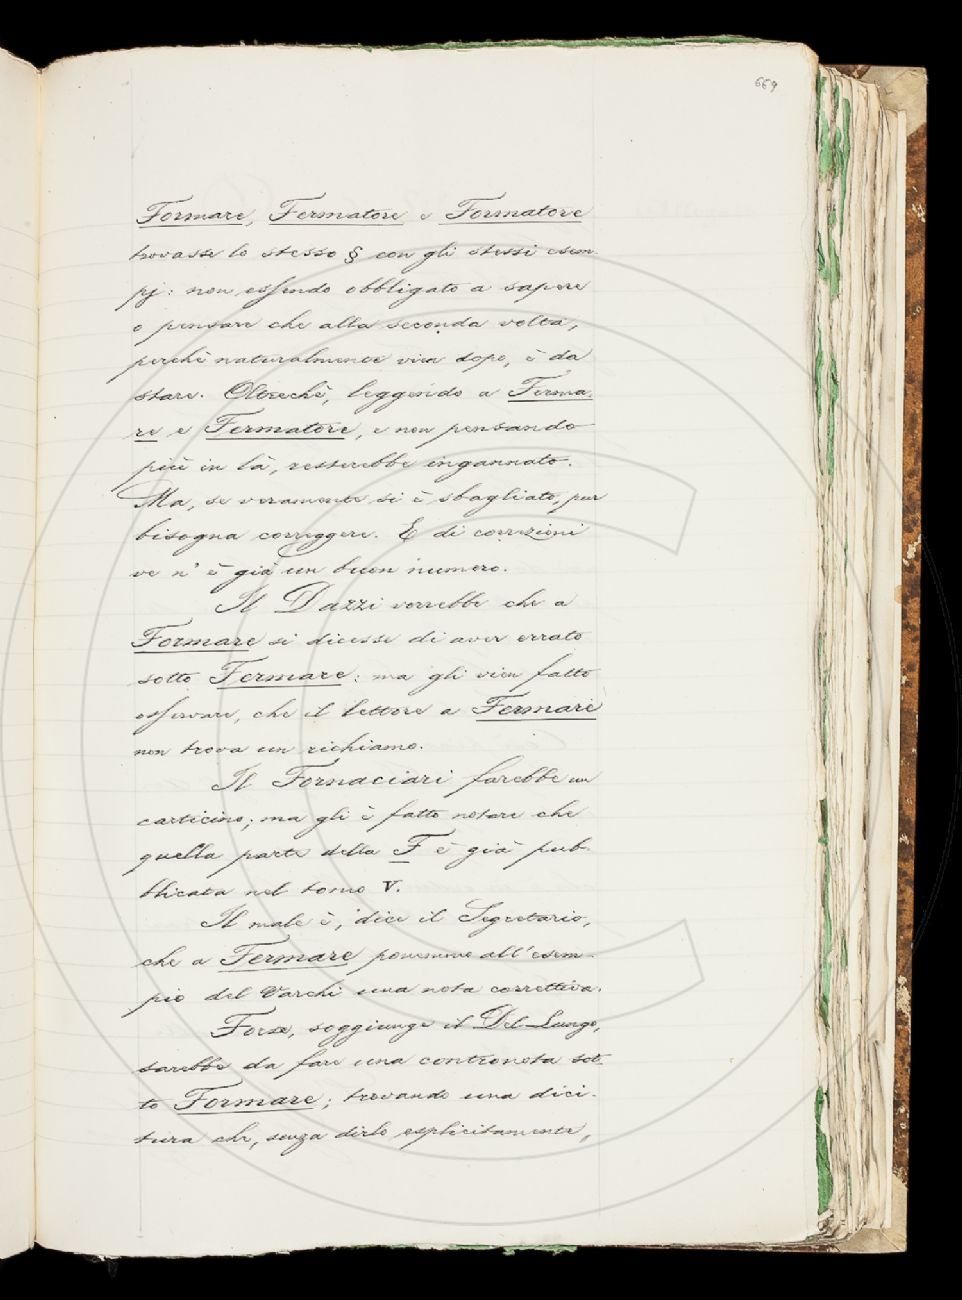 669
Formare, Fermatore e Formatore
trovasse lo stesso § con gli stessi esem-
pj: non essendo obbligato a sapere
o pensare che alla seconda volta,
perchè naturalmente vien dopo, è da
stare. Oltrechè, leggendo a Ferma-
re e Fermatore, e non pensando
più in là, resterebbe ingannato.
Ma, se veramente si è sbagliato, pur
bisogna correggere. E di correzioni
ve n'è già un buon numero.
Il Dazzi vorrebbe che a
Formare si dicesse di aver errato
sotto Fermare: ma gli vien fatto
osservare, che il lettore a Fermare
non trova un richiamo.
Il Fornaciari farebbe un
carticino; ma gli è fatto notare che
quella parte della F è già pub-
blicata nel tomo V.
Il male è, dice il Segretario,
che a Fermare ponemmo all'esem-
pio del Varchi una nota correttiva.
Forse, soggiunge il Del Lungo,
sarebbe da fare una contronota sot-
to Formare; trovando una dici-
tura che, senza dirlo esplicitamente,